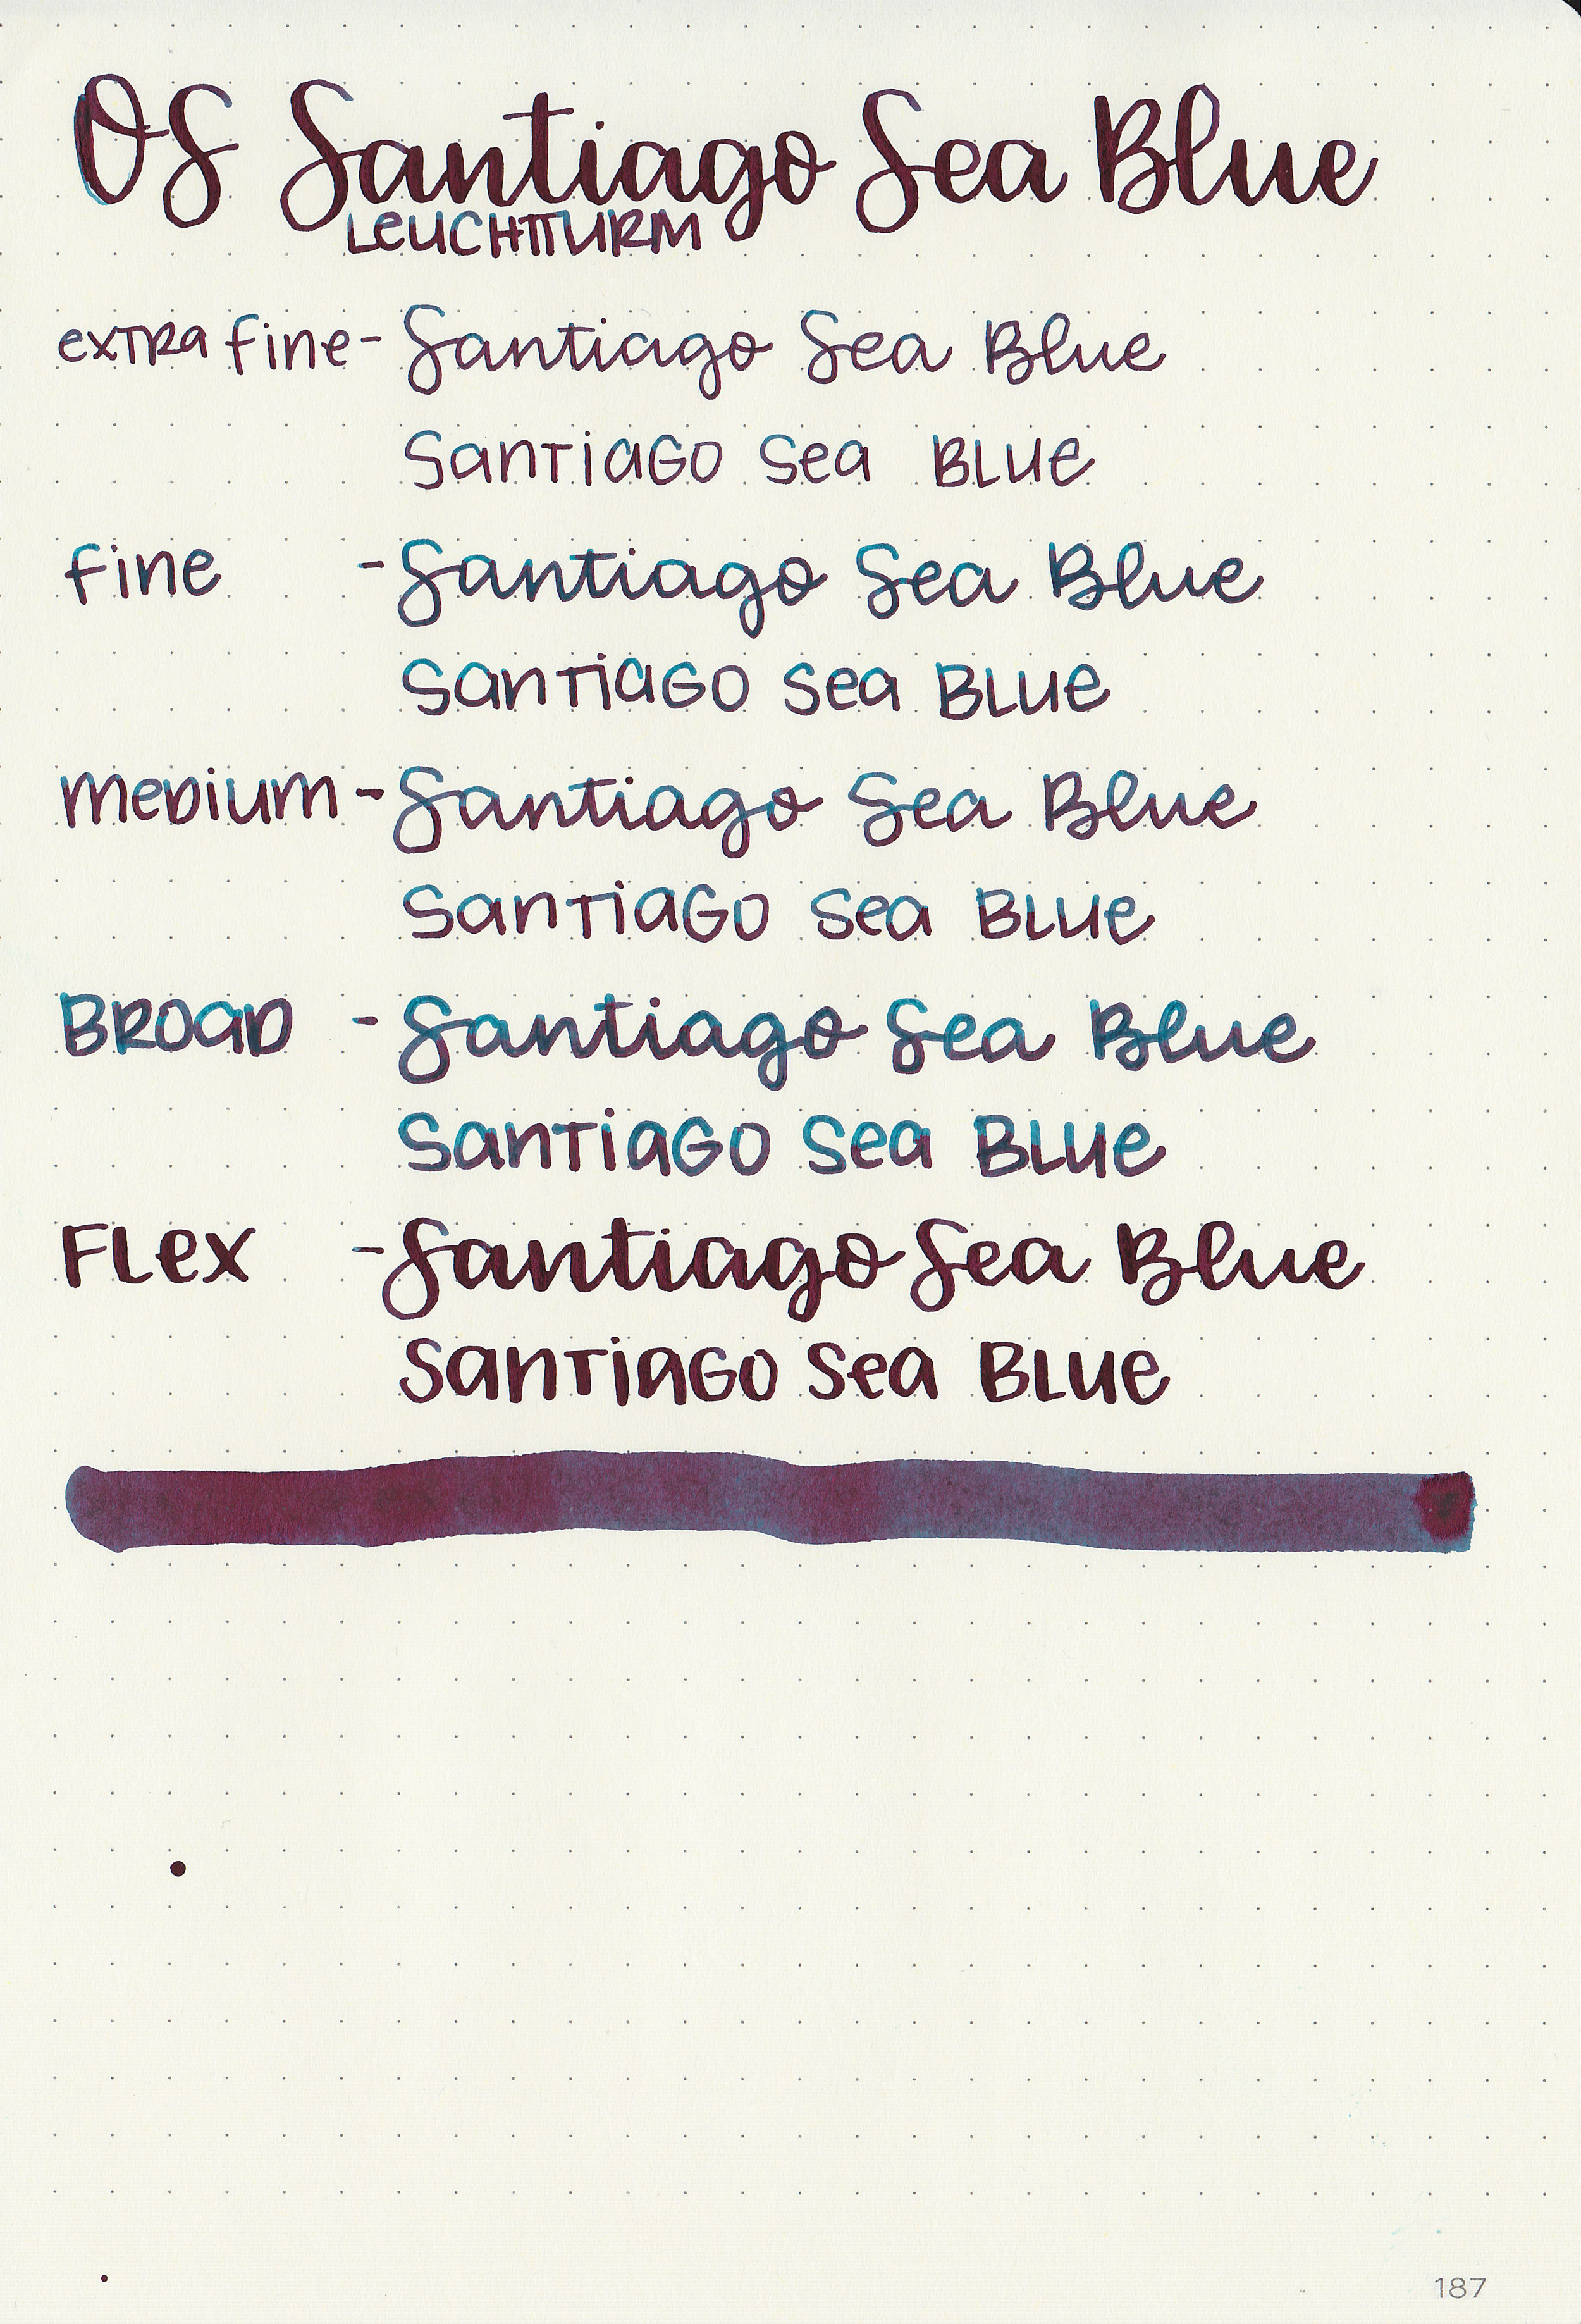 OS Santiago Sea Blue
LeUCHTTURM
exTRa fine - Santiago Sea Blue
SanTiaGO Sea BLUe
fine - Santiago Sea Blue
SanTiaGO Sea BLUe
MeDiUM - Santiago Sea Blue
SanTiaGO Sea BLUe
BROaD - Santiago Sea Blue
SanTiaGO Sea BLUe
FLex - Santiago Sea Blue
SanTiaGO Sea BLUe
187